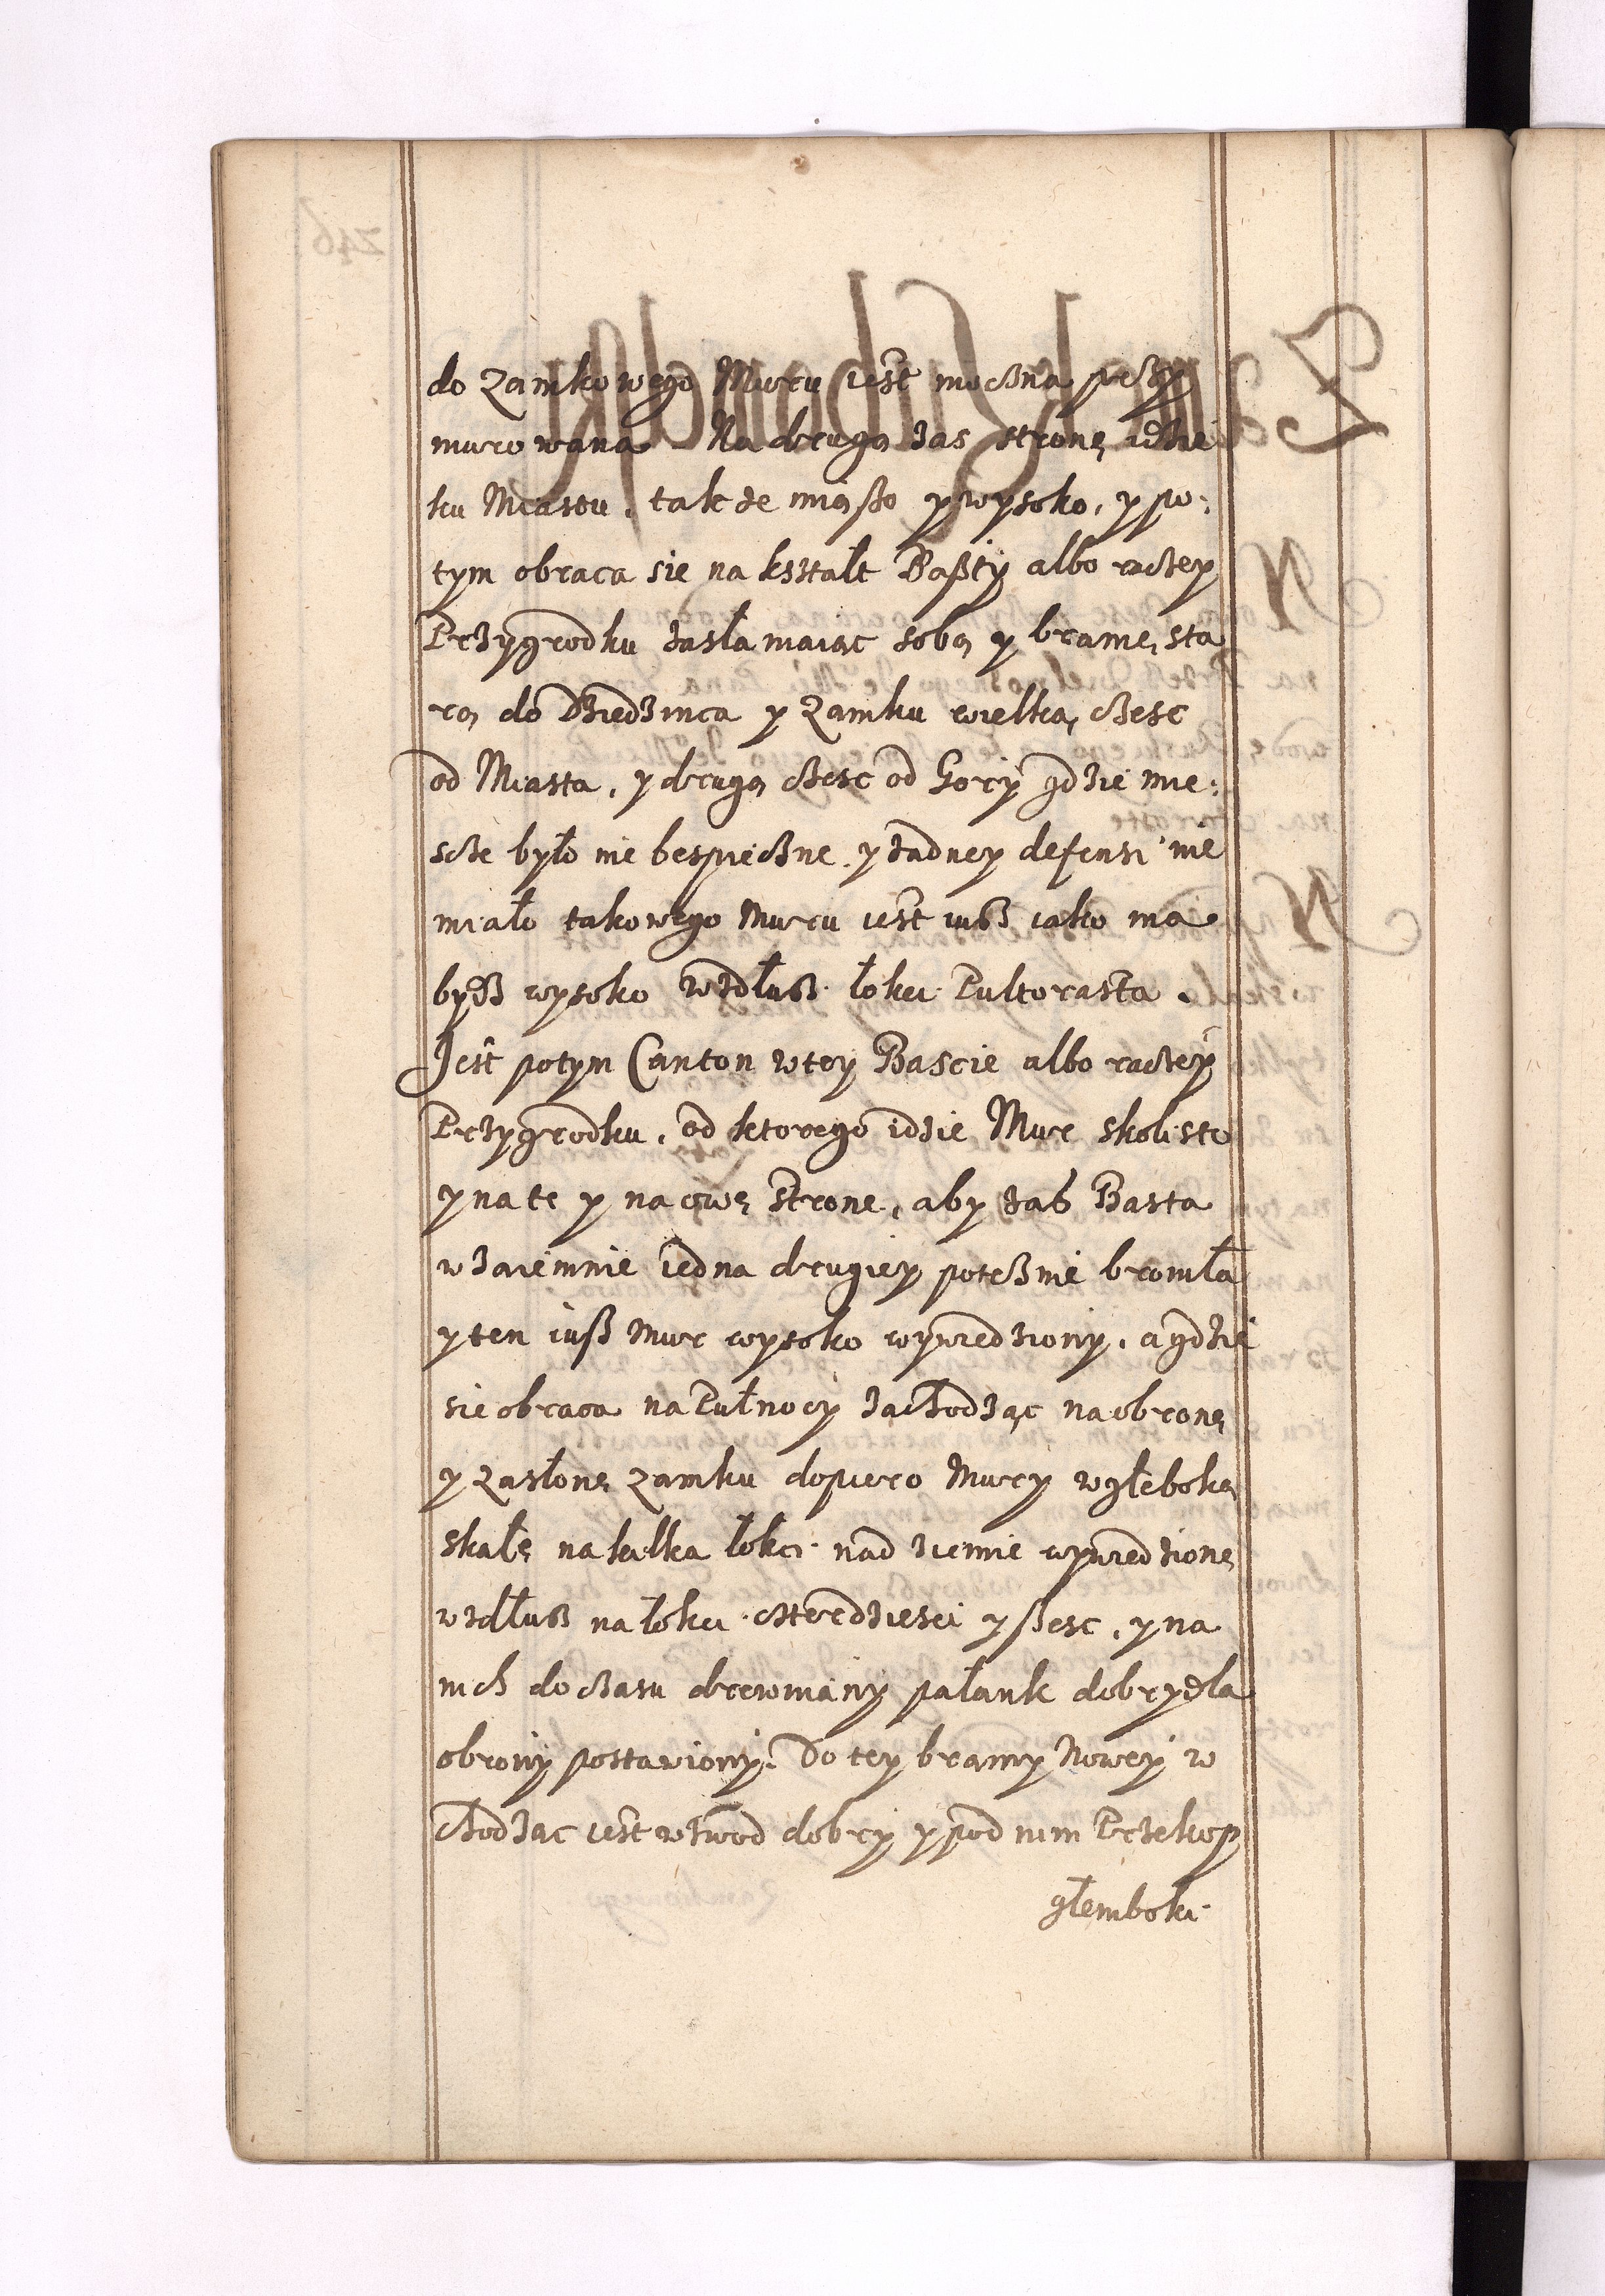 do Zamkowego Muru iest moczna przy
murowana Na drugą zas stronę idzie
ku Miastu, takze miąszo y wysoko, y po:
tym obraca sie na ksztalt Baszty albo raczey
Przygrodku zasłamaiąc sobą y bramę sta
rą do Dziedzinca y Zamku wielką czesc
od Miasta, y drugą czesc od Gory gdzie mie:
scze było nie bespieczne y zadney defensi nie
miało takowego Muru iest iusz iako ma
bydz wysoko wzdłusz łokci Pultorasta.
Jest potym Canton w tey Bascie albo raczey
Przygrodku, od ktorego idzie Mur skolisto
y na te y na owę Stronę, aby zas Basta
wzaiemnie iedna drugiey poteznie broniła
y ten iusz Mur wysoko wywiedziony, a gdzie
sie obraca na Pułnocy zachodząc na obronę
y Zasłonę zamku dopiero Mury w głęboką
skałę na kilka łokci nad ziemie wywiedzione
wzdłusz na łokci czterdziesci y szesc, y na
nich do czasu drewniany pałank dobry dla
obrony postawiony. Do tey bramy Nowey w
chodząc iest wzwod dobry y pod nim Przekop
głemboki